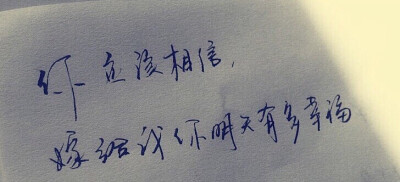 你应该相信，
嫁给我你明天有多幸福